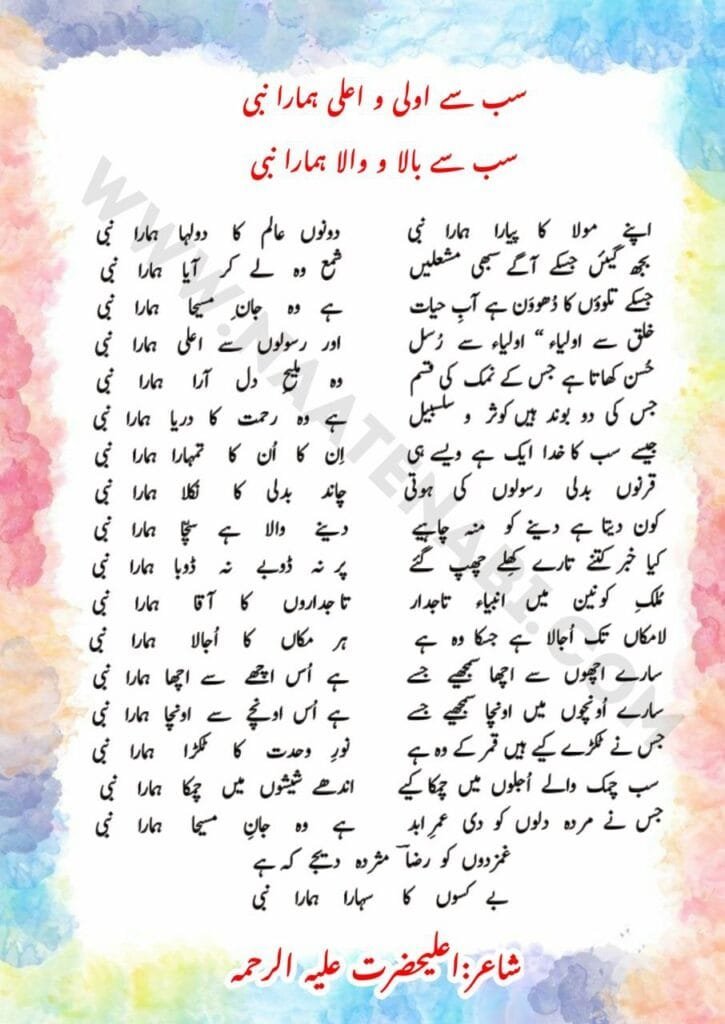 سب سے اولی و اعلی ہمارا نبی
سب سے بالا و والا ہمارا نبی
اپنے مولا کا پیارا ہمارا نبی دونوں عالم کا دولہا ہمارا نبی
بجھ گیئں جسکے آگے سبھی مشعلیں شمع وہ لے کر آیا ہمارا نبی
جسکے تلوؤں کا دُھوؤن ہے آبِ حیات ہے وہ جانِ مسیحا ہمارا نبی
خلق سے اولیاء “ اولیاء سے رُسل اور رسولوں سے اعلی ہمارا نبی
حُسن کھاتا ہے جس کے نمک کی قسم وہ ملیحِ دل آرا ہمارا نبی
جس کی دو بوند ہیں کوثر و سلسبیل ہے وہ رحمت کا دریا ہمارا نبی
جیسے سب کا خدا ایک ہے ویسے ہی اِن کا اُن کا تمہارا ہمارا نبی
قرنوں بدلی رسولوں کی ہوتی چاند بدلی کا نکلا ہمارا نبی
کون دیتا ہے دینے کو منہ چاہیے دینے والا ہے سچّا ہمارا نبی
کیا خبر کتنے تارے کھلے چھپ گئے پر نہ ڈوبے نہ ڈوبا ہمارا نبی
مُلکِ کونین میں انبیاء تاجدار تاجداروں کا آقا ہمارا نبی
لامکاں تک اُجالا ہے جسکا وہ ہے ہر مکاں کا اُجالا ہمارا نبی
سارے اچھوں سے اچھا سمجھیے جسے ہے اُس اچھے سے اچھا ہمارا نبی
سارے اُونچوں میں اونچا سمجھیے جسے ہے اُس اونچے سے اونچا ہمارا نبی
جس نے ٹکڑے کیے ہیں قمر کے وہ ہے نورِ وحدت کا ٹکڑا ہمارا نبی
سب چمک والے اُجلوں میں چمکا کیے اندھے شیشوں میں چمکا ہمارا نبی
جس نے مردہ دلوں کو دی عمرِ ابد ہے وہ جانِ مسیحا ہمارا نبی
غمزدوں کو رضاؔ مثردہ دیجے کہ ہے
بے کسوں کا سہارا ہمارا نبی
شاعر:اعلیحضرت علیہ الرحمہ
WWW.NAATENABI.COM